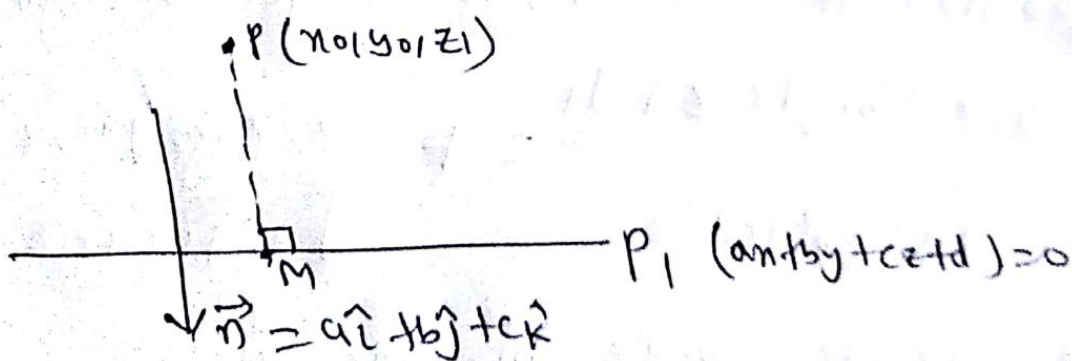 P(x0, y0, z1)
M
P1 (ax+by+cz+d)=0
n⃗ = aî+bĵ+ck̂